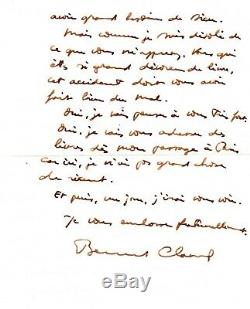 avoir grand besoin de vous.
Mais comme je suis désolé de
ce que vous m'apprenez, vous qui
si grand de livres,
cet accident doit vous avoir
fait bien du mal.
Oui, je vais penser à vous très fort.
Oui, je vais vous adresser des
livres dès mon passage à Paris
car ici, je n'ai pas grand chose
de récent.
Et puis, un jour, j'irai vous voir.
Je vous embrasse fraternellement.
Bernard Clavel